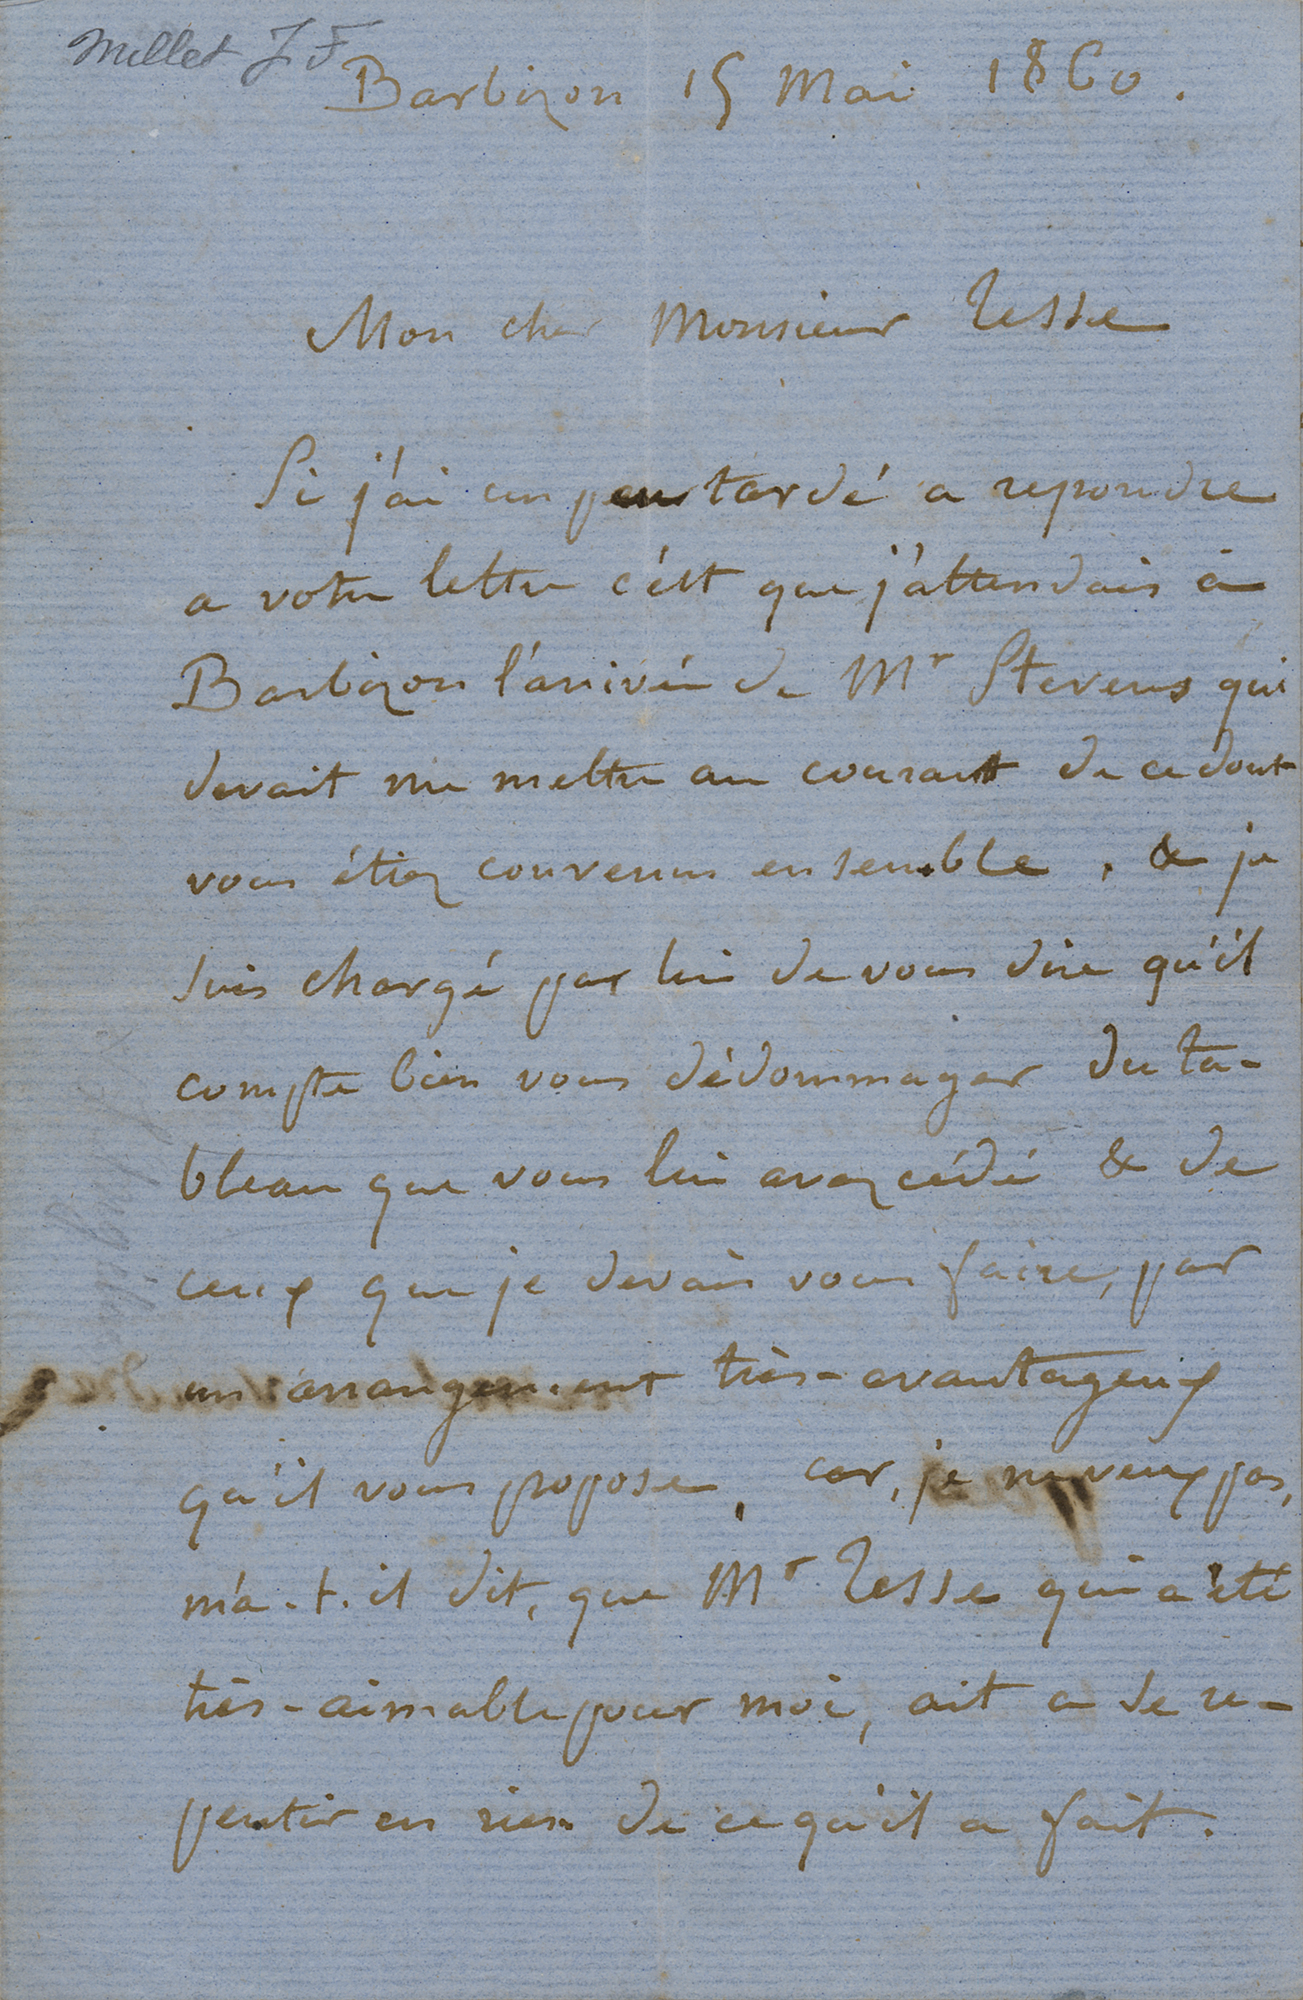 Millet J F
Barbizon 15 Mai 1860.
Mon cher Monsieur Tesse
Si j'ai un peu tardé a repondre
a votre lettre c'est que j'attendais à
Barbizon l'arrivée de Mr Stevens qui
devait me mettre au courant de ce dont
vous étiez convenus ensemble, & je
suis chargé par lui de vous dire qu'il
compte bien vous dédommager du ta-
bleau que vous lui avez cédé & de
ceux que je devais vous faire, par
un arrangement très-avantageux
qu'il vous propose, car, je ne veux pas,
m'a-t-il dit, que Mr Tesse qui a été
très-aimable pour moi, ait a se re-
pentir en rien de ce qu'il a fait.